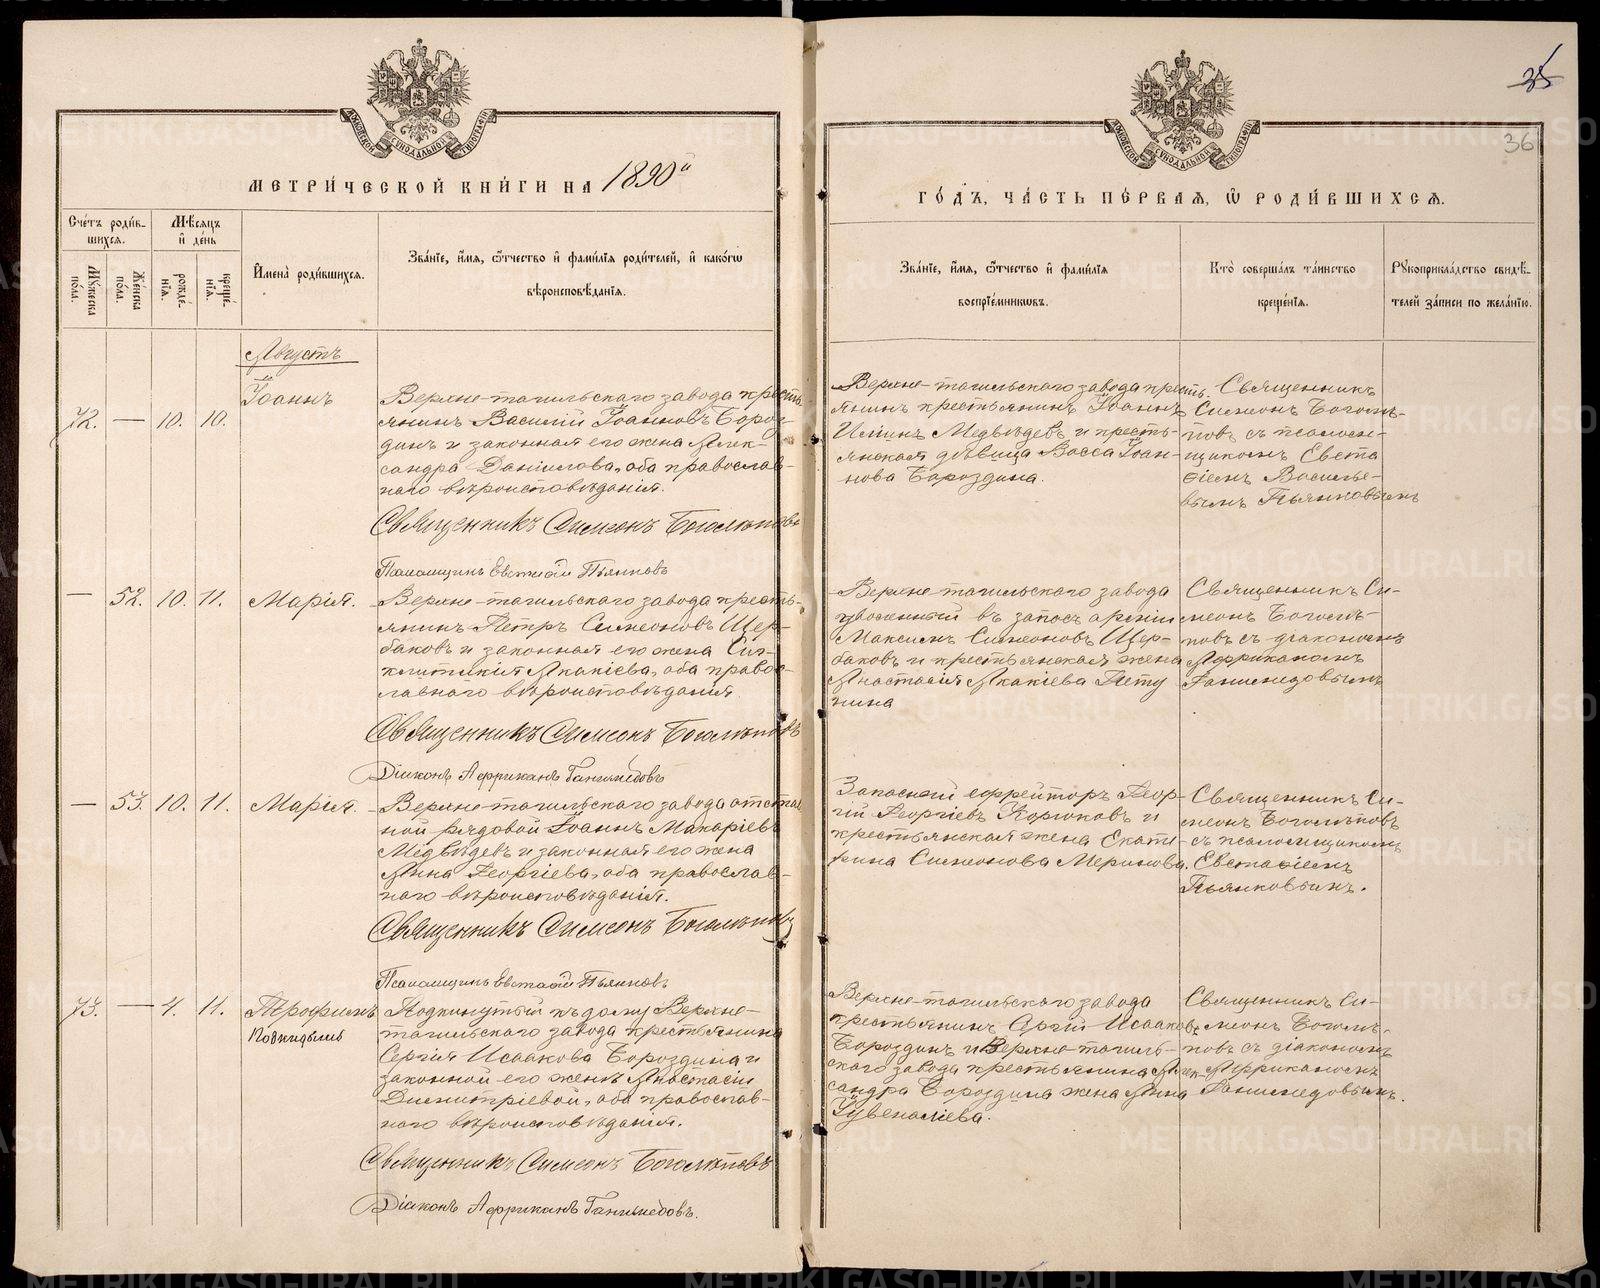 35
36
МОСКОВСКОЙ СѴНОДАЛЬНОЙ ТИПОГРАФІИ
МЕТРИ́ЧЕСКОЙ КНИ́ГИ НА 1890й
Сче́тъ роди́вшихсѧ.
Мѣ́сѧцъ и҆ де́нь
Мꙋ́жеска по́ла.
Же́нска по́ла.
рожде́нїѧ.
креще́нїѧ.
И҆мена̀ роди́вшихсѧ.
Зва́нїе, и҆́мѧ, ѻ҆́тчество и҆ фами́лїѧ роди́телей, и҆ како́гѡ
вѣроисповѣ́данїѧ.
Августъ
72. — 10. 10.
Іоаннъ
Верхне-тагильскаго завода кресть
янинъ Василій Іоанновъ Бороз-
динъ и законная его жена Алек-
сандра Даніилова, оба православ-
наго вѣроисповѣданія.
Священникъ Симеонъ Боголѣповъ
Псаломщикъ Евстафій Пьянковъ
— 52. 10. 11.
Марія.
Верхне-тагильскаго завода кресть-
янинъ Петръ Симеоновъ Щер-
баковъ и законная его жена Син-
клитикія Акакіева, оба право-
славнаго вѣроисповѣданія.
Священникъ Симеонъ Боголѣповъ
Діаконъ Африканъ Ганимедовъ
— 53. 10. 11.
Марія.
Верхне-тагильскаго завода отстав
ной рядовой Іоаннъ Макаріевъ
Медвѣдевъ и законная его жена
Анна Георгіева, оба православ-
наго вѣроисповѣданія.
Священникъ Симеонъ Боголѣповъ
Псаломщикъ Евстафій Пьянковъ
73. — 4. 11.
Трофимъ
Подкидышъ
Подкинутый къ дому Верхне-
тагильскаго завода крестьянина
Сергія Исаакова Бороздина и
законной его женѣ Анастасіи
Димитріевой, оба православ-
наго вѣроисповѣданія.
Священникъ Симеонъ Боголѣповъ
Діаконъ Африканъ Ганимедовъ.
МОСКОВСКОЙ СѴНОДАЛЬНОЙ ТИПОГРАФІИ
ГО́ДЪ, ЧА́СТЬ ПЕ́РВАѦ, Ѡ҆ РОДИ́ВШИХСѦ.
Зва́нїе, и҆́мѧ, ѻ҆́тчество и҆ фами́лїѧ
воспрїе́мникѡвъ.
Кто̀ соверша́лъ та́инство
креще́нїѧ.
Рꙋкоприкла́дство свидѣ́-
телей за́писи по жела́нїю.
Верхне-тагильскаго завода кресть
янинъ крестьянинъ Іоаннъ
Иліинъ Медвѣдевъ и кресть-
янская дѣвица Васса Іоан-
нова Бороздина.
Священникъ
Симеонъ Боголѣ-
повъ съ псалом-
щикомъ Евста
фіемъ Василье-
вымъ Пьянковымъ
Верхне-тагильскаго завода
уволенный въ запасъ арміи
Максимъ Симеоновъ Щер-
баковъ и крестьянская жена
Анастасія Акакіева Пету
нина
Священникъ Си-
меонъ Боголѣ-
повъ съ діакономъ
Африканомъ
Ганимедовымъ
Запасный ефрейторъ Геор-
гій Георгіевъ Корюковъ и
крестьянская жена Екате-
рина Симеонова Меринова.
Священникъ Си-
меонъ Боголѣповъ
съ псаломщикомъ
Евстафіемъ
Пьянковымъ.
Верхне-тагильскаго завода
крестьянинъ Сергій Исааковъ
Бороздинъ и Верхне-тагиль-
скаго завода крестьянина Алек-
сандра Бороздина жена Анна
Ювеналіева.
Священникъ Си-
меонъ Боголѣ-
повъ съ діакономъ
Африканомъ
Ганимедовымъ.
METRIKI.GASO-URAL.RU